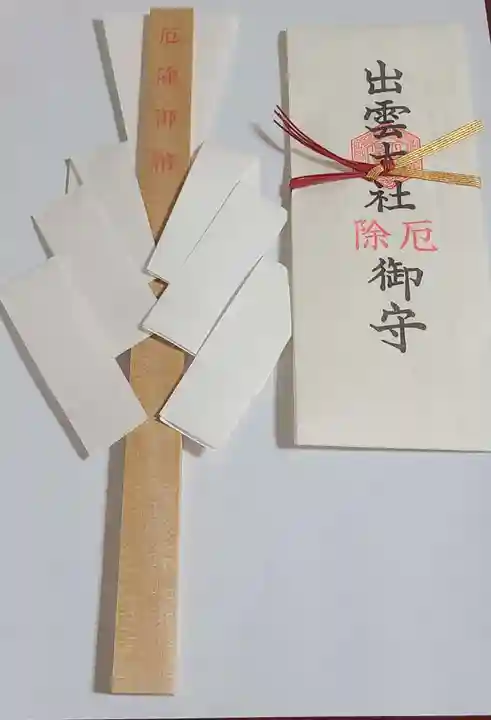 厄除御幣
出雲大社
厄除
御守